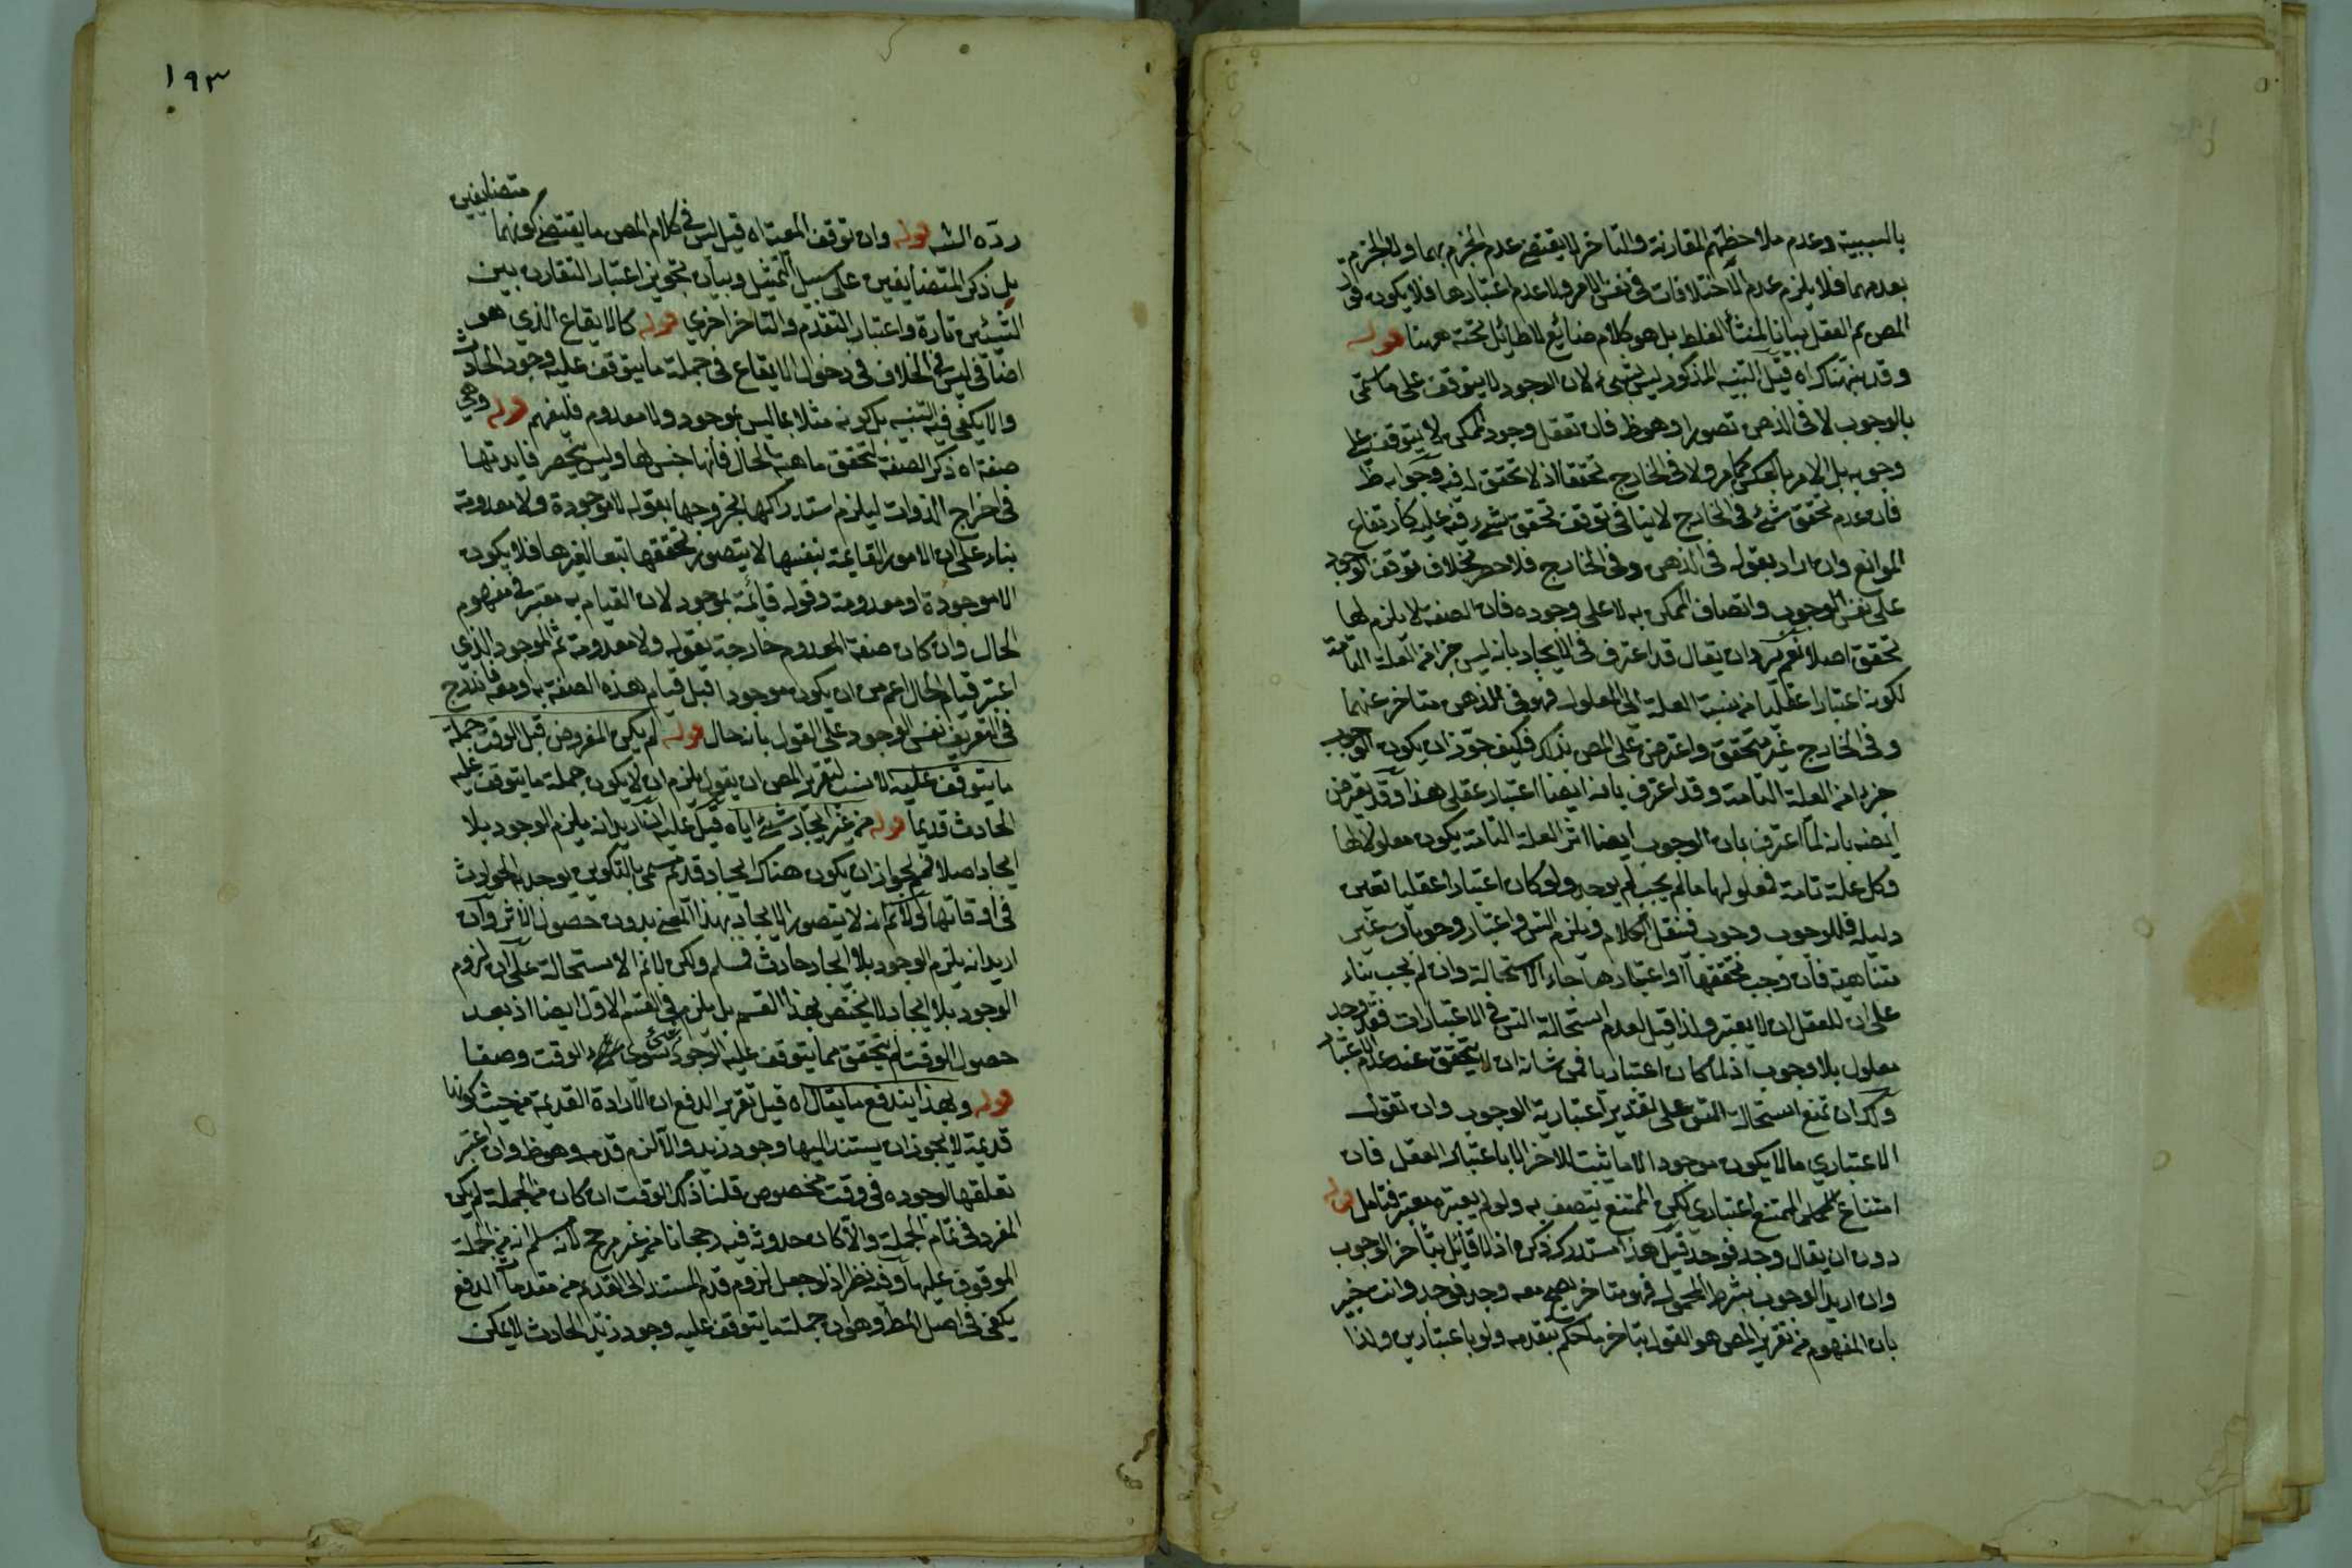 بالسببية وعدم ملاحظتهم المقارنة والتاخر لا يقتضي عدم الجزم بهما ولا الجزم
بعدمهما فلا يلزم عدم الاختلافات في نفس الامر ولا عدم اعتبارها فلا يكون
المص ثم الفعل بيانا لمنشأ الغلط بل هو كلام ضائع لا طائل تحته ههنا قوله
وقد بنهناك اه قيل التنبيه المذكور ليس بشيء لان الوجود لا يتوقف على ما سمي
بالوجوب لا في الذهن تصورا وهو ظ فان تعقل وجود الممكن لا يتوقف على
وجوبه بل الامر بالعكس كما مر ولا في الخارج تحققا اذ لا تحقق له فيه وجوابه ظ
فان عدم تحقق شيء في الخارج لا ينافي توقف تحقق شيء فيه عليه كارتفاع
الموانع وان اراد بقوله في الذهن وفي الخارج فلا حصر بخلاف توقف الوجود
على نفس الوجوب واتصاف الممكن به لا على وجوده فان الصفة لا يلزم لها
تحقق اصلا نعم يرد ان يقال قد اعترف في الايجاد بانه ليس جزا من العلة التامة
لكونه اعتبارا عقليا من نسبة العلة الى المعلول فهو في الذهن متاخر عنهما
وفي الخارج غير متحقق واعترض على المص بذلك فكيف جوز ان يكون الوجوب
جزءا من العلة التامة وقد اعترف بانه ايضا اعتبار عقلي هذا وقد يعترض
ايضه بانه لما اعترف بان الوجوب ايضا اثر العلة التامة يكون معلولا لها
وكل علة تامة فمعلولها ما لم يجب لم يوجد ولو كان اعتبارا عقليا تعين
دليله فللوجوب وجوب فننقل الكلام ويلزم التس واعتبار وجوبات غير
متناهية فان وجب تحققها او اعتبارها جاء الاستحالة وان لم يجب بناء
على ان للعقل ان لا يعتبر ولذا قيل لعدم استحالة التس في الاعتبارات فقد وجد
معلول بلا وجوب اذ لما كان اعتباريا فمن شانه ان لا يتحقق عند عدم الاعتبار
ولك ان تمنع استحالة التس على تقدير اعتبارية الوجوب وان تقول
الاعتباري ما لا يكون موجودا لا ما يثبت للاخر الا باعتبار العقل فان
امتناع الممتنع اعتباري لكن الممتنع يتصف به ولو لم يعتبره معتبر فتامل قوله
دون ان يقال وجد فوجد قيل هذا مستدرك ذكره اذ لا قائل بتأخر الوجوب
وان اريد الوجوب بشرط المحمول فهو متاخر يصح معه وجد فوجد وانت خبير
بان المفهوم من تقرير المص هو القول بتاخر ما حكم بتقدمه ولو باعتبارين ولذا
١٩٣
متضايفين
رده الشه قوله وان توقف المعية اه قيل ليس في كلام المص ما يقتضي كونهما
بل ذكر المتضايفين على سبيل التمثيل وبيان تجويز اعتبار التقارن بين
الشيئين تارة واعتبار التقدم والتاخر اخرى قوله كالايقاع الذي هو
اضافي ليس في الخلاف في دخول الايقاع في جملة ما يتوقف عليه وجود الحادث
والا يكفي فيه التنبيه بل كونه مثلا بما ليس بموجود ولا معدوم فليفهم قوله وهي
صفة اه ذكر الصفة لتحقق ماهية الحال فانها جنس لها وليس يخصر فايدتها
في اخراج الذوات ليلزم استدراكها لخروجها بقوله لا موجودة ولا معدومة
بناء على ان الامور القايمة بنفسها لا يتصور تحققها تبعا لغيرها فلا يكون
الا موجودة او معدومة وقوله قائمة بموجود لان القيام به معتبر في مفهوم
الحال وان كان صفة المعدوم خارجة بقوله ولا معدومة ثم الموجود الذي
اعتبر قيام الحال اعم من ان يكون موجودا قبل قيام هذه الصفة به او معه فاندرج
في التعريف نفس الوجود على القول بانه حال قوله لم يكن المفروض قبل الوقت جملة
ما يتوقف عليه الانسب لتقرير المص ان يقول يلزم ان لا يكون جملة ما يتوقف عليه
الحادث قديما قوله من غير ايجاد شيء اياه قيل عليه ان اريد انه يلزم الوجود بلا
ايجاد اصلا فمم لجواز ان يكون هناك ايجاد قديم مسمى بالتكوين يوجد به الحوادث
في اوقاتها لا نم انه لا يتصور الايجاد بهذا المعنى بدون حصول الاثر وان
اريد انه يلزم الوجود بلا ايجاد حادث فمسلم ولكن لا نم الاستحالة على ان لزوم
الوجود بلا ايجاد لا يختص بهذا القسم بل يلزم في القسم الاول ايضا اذ بعد
حصول الوقت لم يتحقق مما يتوقف عليه الوجود شيء سوى الوقت وصفا
قوله وبهذا يندفع ما يقال اه قيل تقرير الدفع ان الارادة القديمة من حيث كونها
قديمة لا يجوز ان يستند اليها وجود زيد والا لزم قدمه وهو ظ وان اعتبر
تعلقها لوجوده في وقت مخصوص قلنا ذلك الوقت ان كان من الجملة لم يكن
المفروض تمام الجملة والا كان حدوثه فيه رجحانا من غير مرجح لانه سلم انه من الجملة
الموقوف عليها وفيه نظر اذ لو جعل لزوم قدم المستند الى القديم من مقدمات الدفع
يكفي في اصل المط وهو ان جملة ما يتوقف عليه وجود زيد الحادث لا يمكن